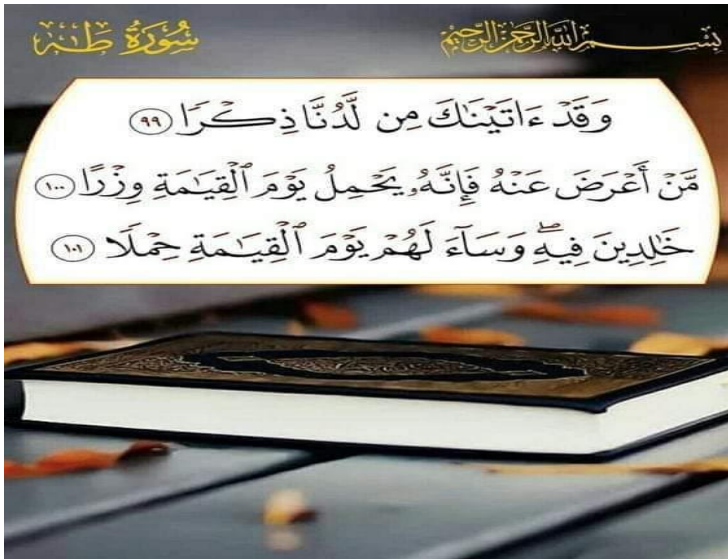 بِسْمِ اللَّهِ الرَّحْمَٰنِ الرَّحِيمِ
سُورَةُ طه
وَقَدْ ءَاتَيْنَٰكَ مِن لَّدُنَّا ذِكْرًا ٩٩
مَّنْ أَعْرَضَ عَنْهُ فَإِنَّهُۥ يَحْمِلُ يَوْمَ ٱلْقِيَٰمَةِ وِزْرًا ١٠٠
خَٰلِدِينَ فِيهِ ۖ وَسَآءَ لَهُمْ يَوْمَ ٱلْقِيَٰمَةِ حِمْلًا ١٠١